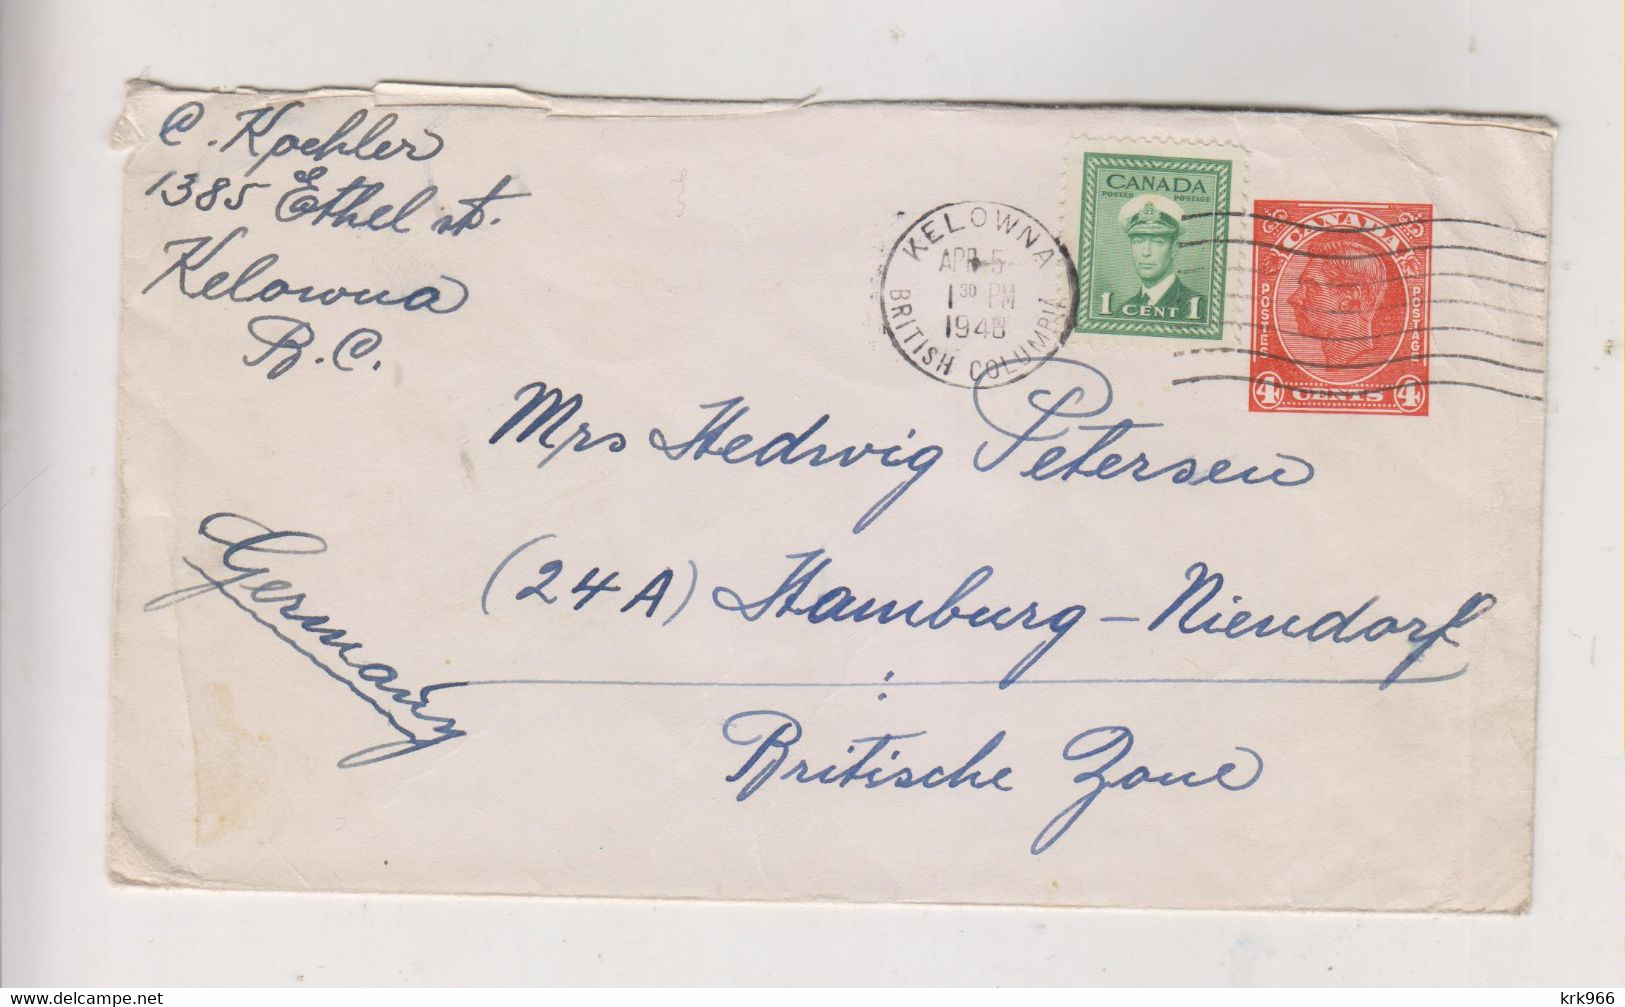 C. Koehler
1385 Ethel st.
Kelowna
B.C.
KELOWNA
APR 5
1 30 PM
1948
BRITISH COLUMBIA
CANADA
POSTES POSTAGE
1 CENT 1
CANADA
POSTES POSTAGE
4 CENTS 4
Mrs Hedwig Petersen
(24A) Hamburg-Niendorf
Germany
Britische Zone
krk966